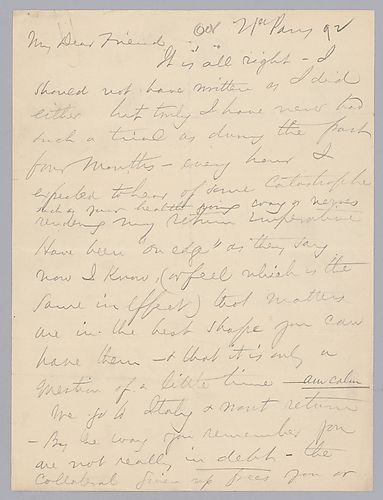 Oct 21st Paris 92
My Dear Friend
It is "all right" - I
should not have written as I did
either but truly I have never had
such a trial as during the past
four months - every hour I
expected to hear of some catastrophe
such as your health giving way & nerves
rendering my return imperative
Have been "on edge" as they say
now I Know, (or feel which is the
same in effect) that matters
are in the best shape you can
have them - & that it is only a
question of a little time - am calm
We go to Italy & must return
- By the way you remember you
are not really in debt - the
collateral given up frees you or